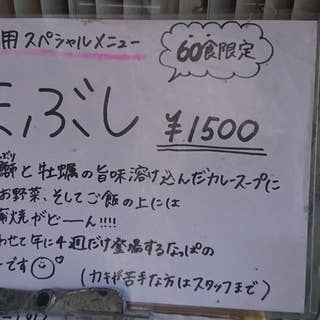 用スペシャルメニュー
60食限定
まぶし ¥1500
ぶり
鰤と牡蠣の旨味溶け込んだカレースープに
お野菜、そしてご飯の上には
焼がどーん!!!!
わせて年に4週だけ登場するなっぱの
ーです
(カキが苦手な方はスタッフまで)